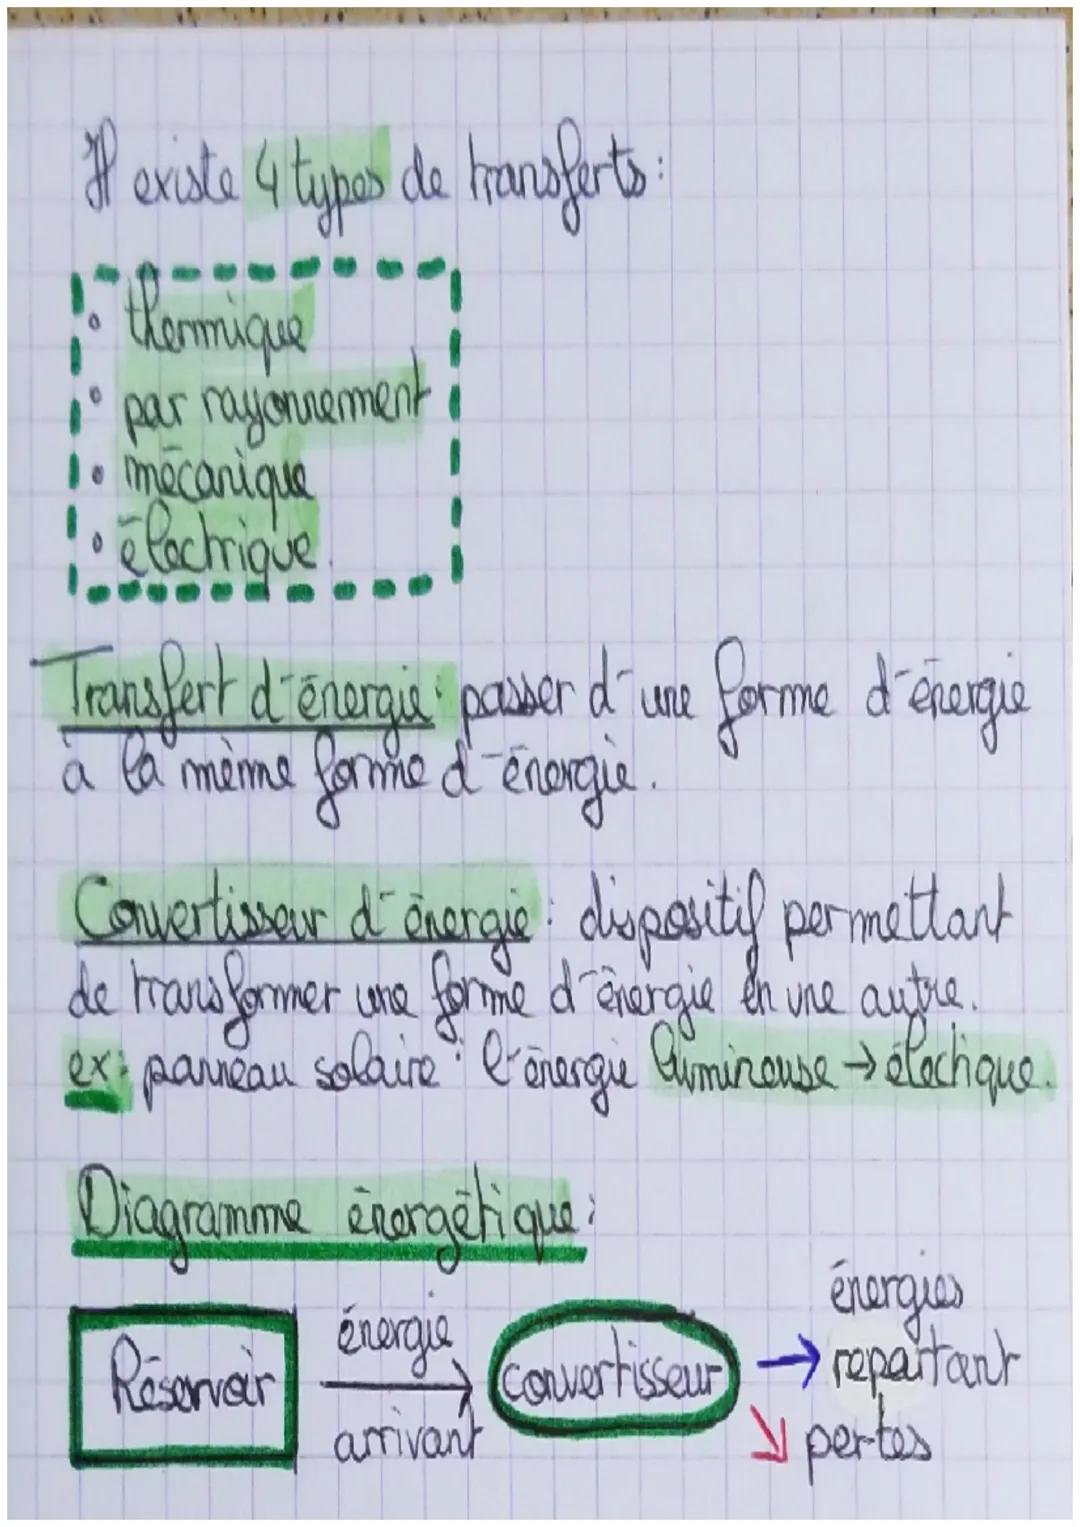 Il existe 4 types de transferts :
• thermique
• par rayonnement
• mécanique
• électrique.
Transfert d'énergie : passer d'une forme d'énergie
à la même forme d'énergie.
Convertisseur d'énergie : dispositif permettant
de transformer une forme d'énergie en une autre.
ex : panneau solaire : l'énergie lumineuse → électique.
Diagramme énergétique :
Réservoir
énergie
arrivant
convertisseur
énergies
repartant
pertes